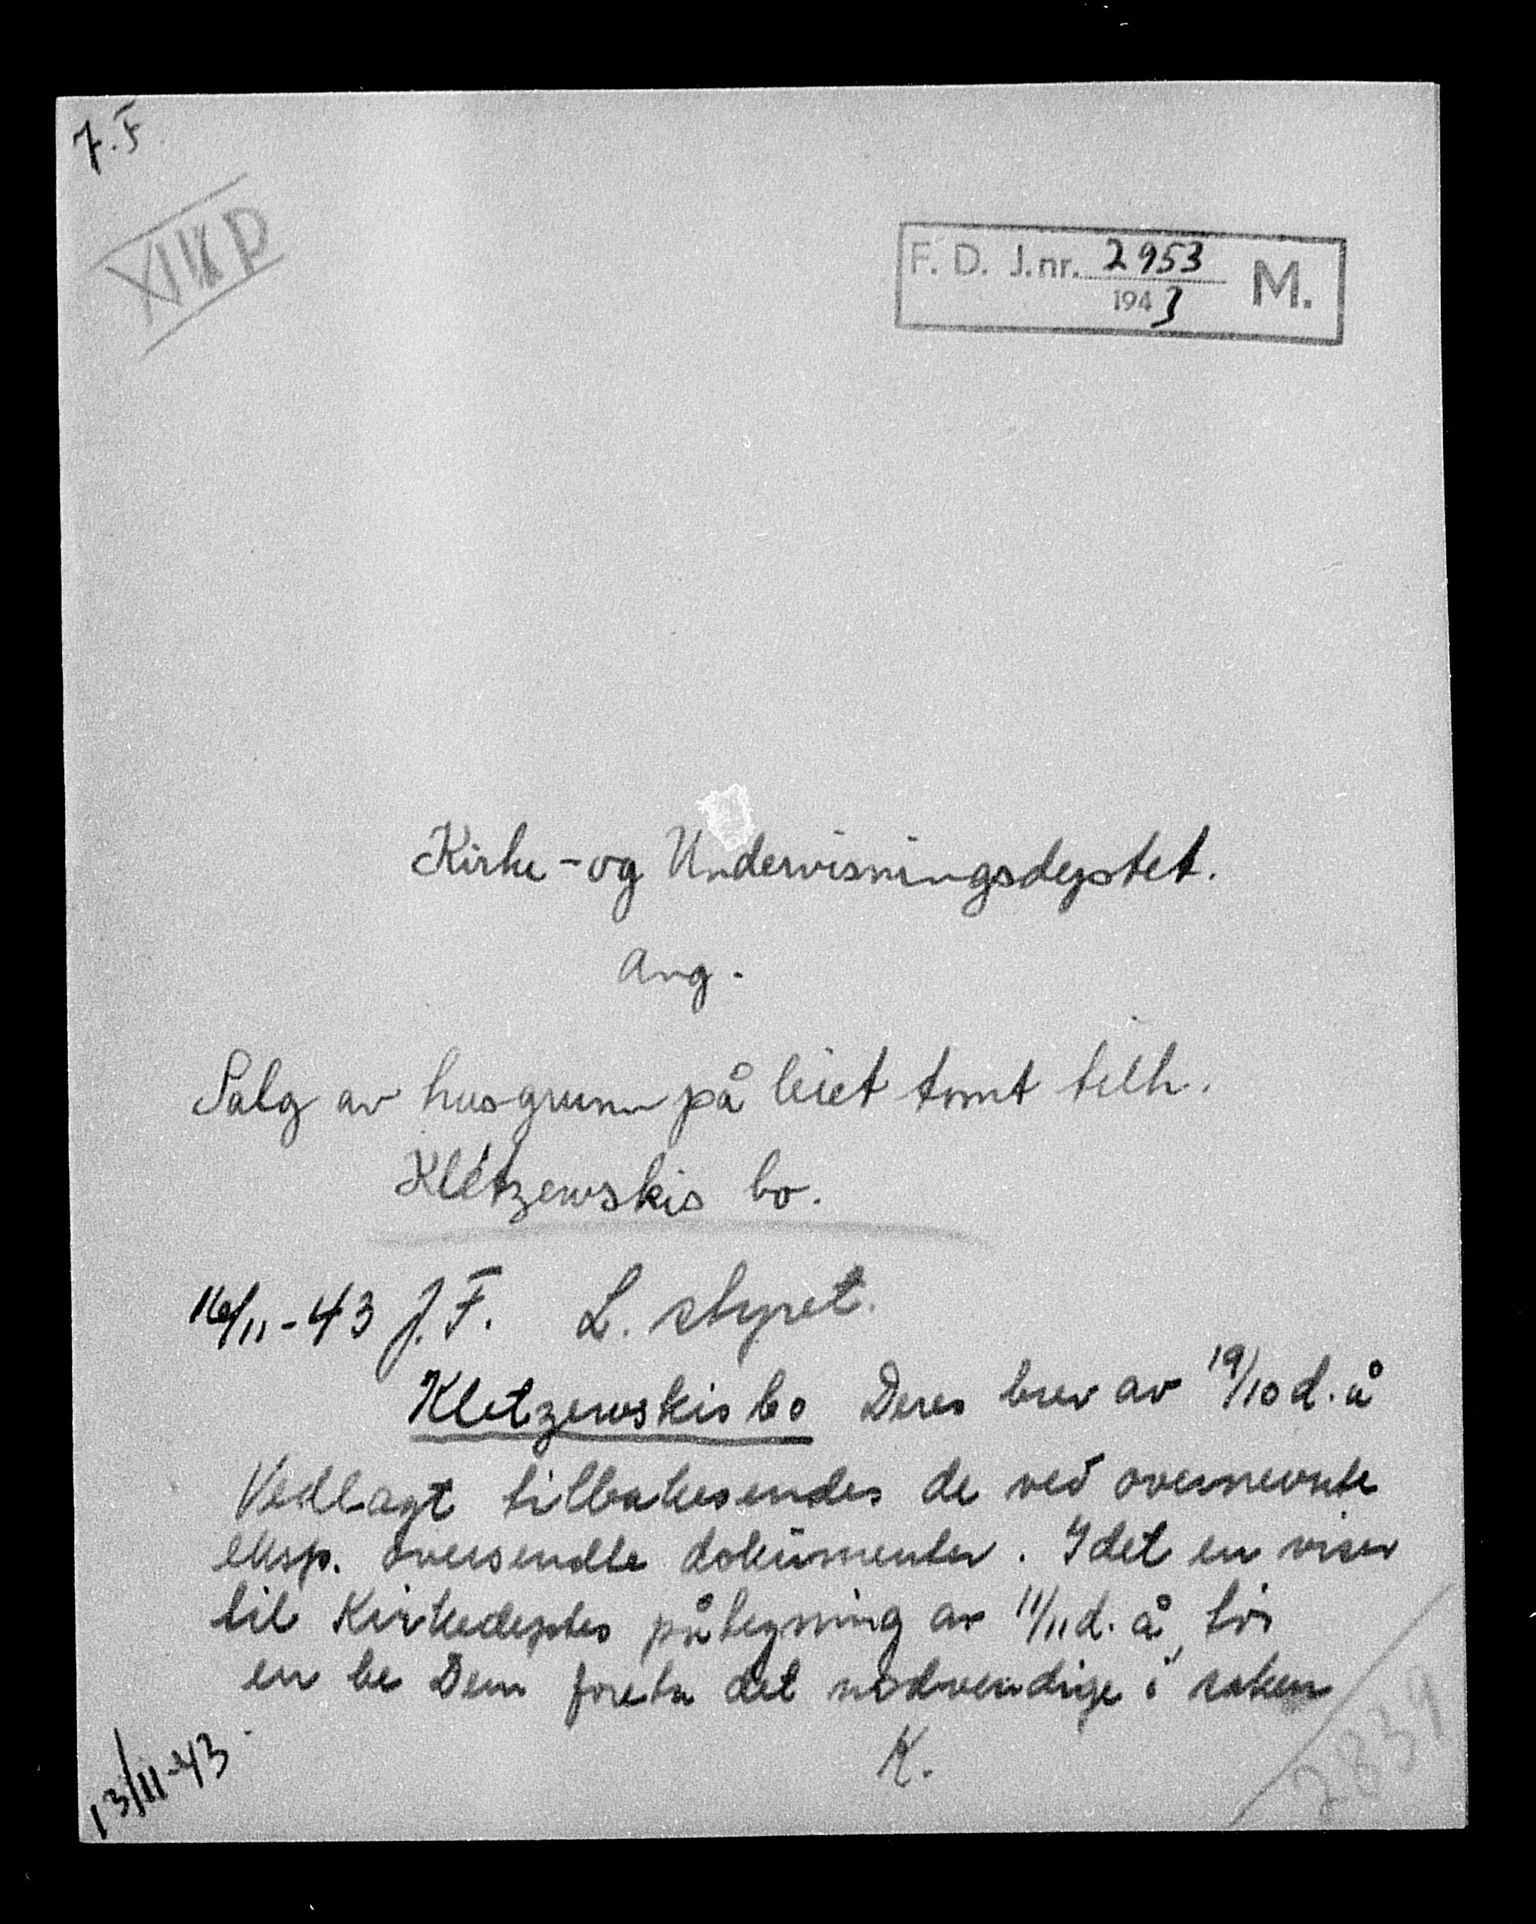 J. F.
XIII P
F. D. J.nr. 2953 M.
1943
Kirke-og Undervisningsdeptet.
Ang.
Salg av husgrunn på leiet tomt tilh.
Kletzewskis bo.
16/11-43 J. F. L. styret.
Kletzewskis bo Deres brev av 19/10 d. å
Vedlagt tilbakesendes de ved ovennevnte
eksp. oversendte dokumenter. Idet en viser
til Kirkedeptes påtegning av 11/11 d. å, tör
en be Dem foreta det nødvendige i saken
K.
13/11-43
2839